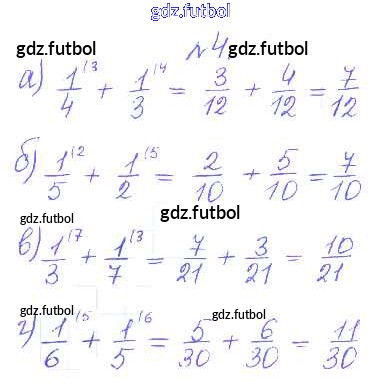 gdz.futbol
gdz.futbol
№4 gdz.futbol
а) 1/4 ⁽³ + 1/3 ⁽⁴ = 3/12 + 4/12 = 7/12
б) 1/5 ⁽² + 1/2 ⁽⁵ = 2/10 + 5/10 = 7/10
gdz.futbol
gdz.futbol
в) 1/3 ⁽⁷ + 1/7 ⁽³ = 7/21 + 3/21 = 10/21
gdz.futbol
gdz.futbol
г) 1/6 ⁽⁵ + 1/5 ⁽⁶ = 5/30 + 6/30 = 11/30
gdz.futbol